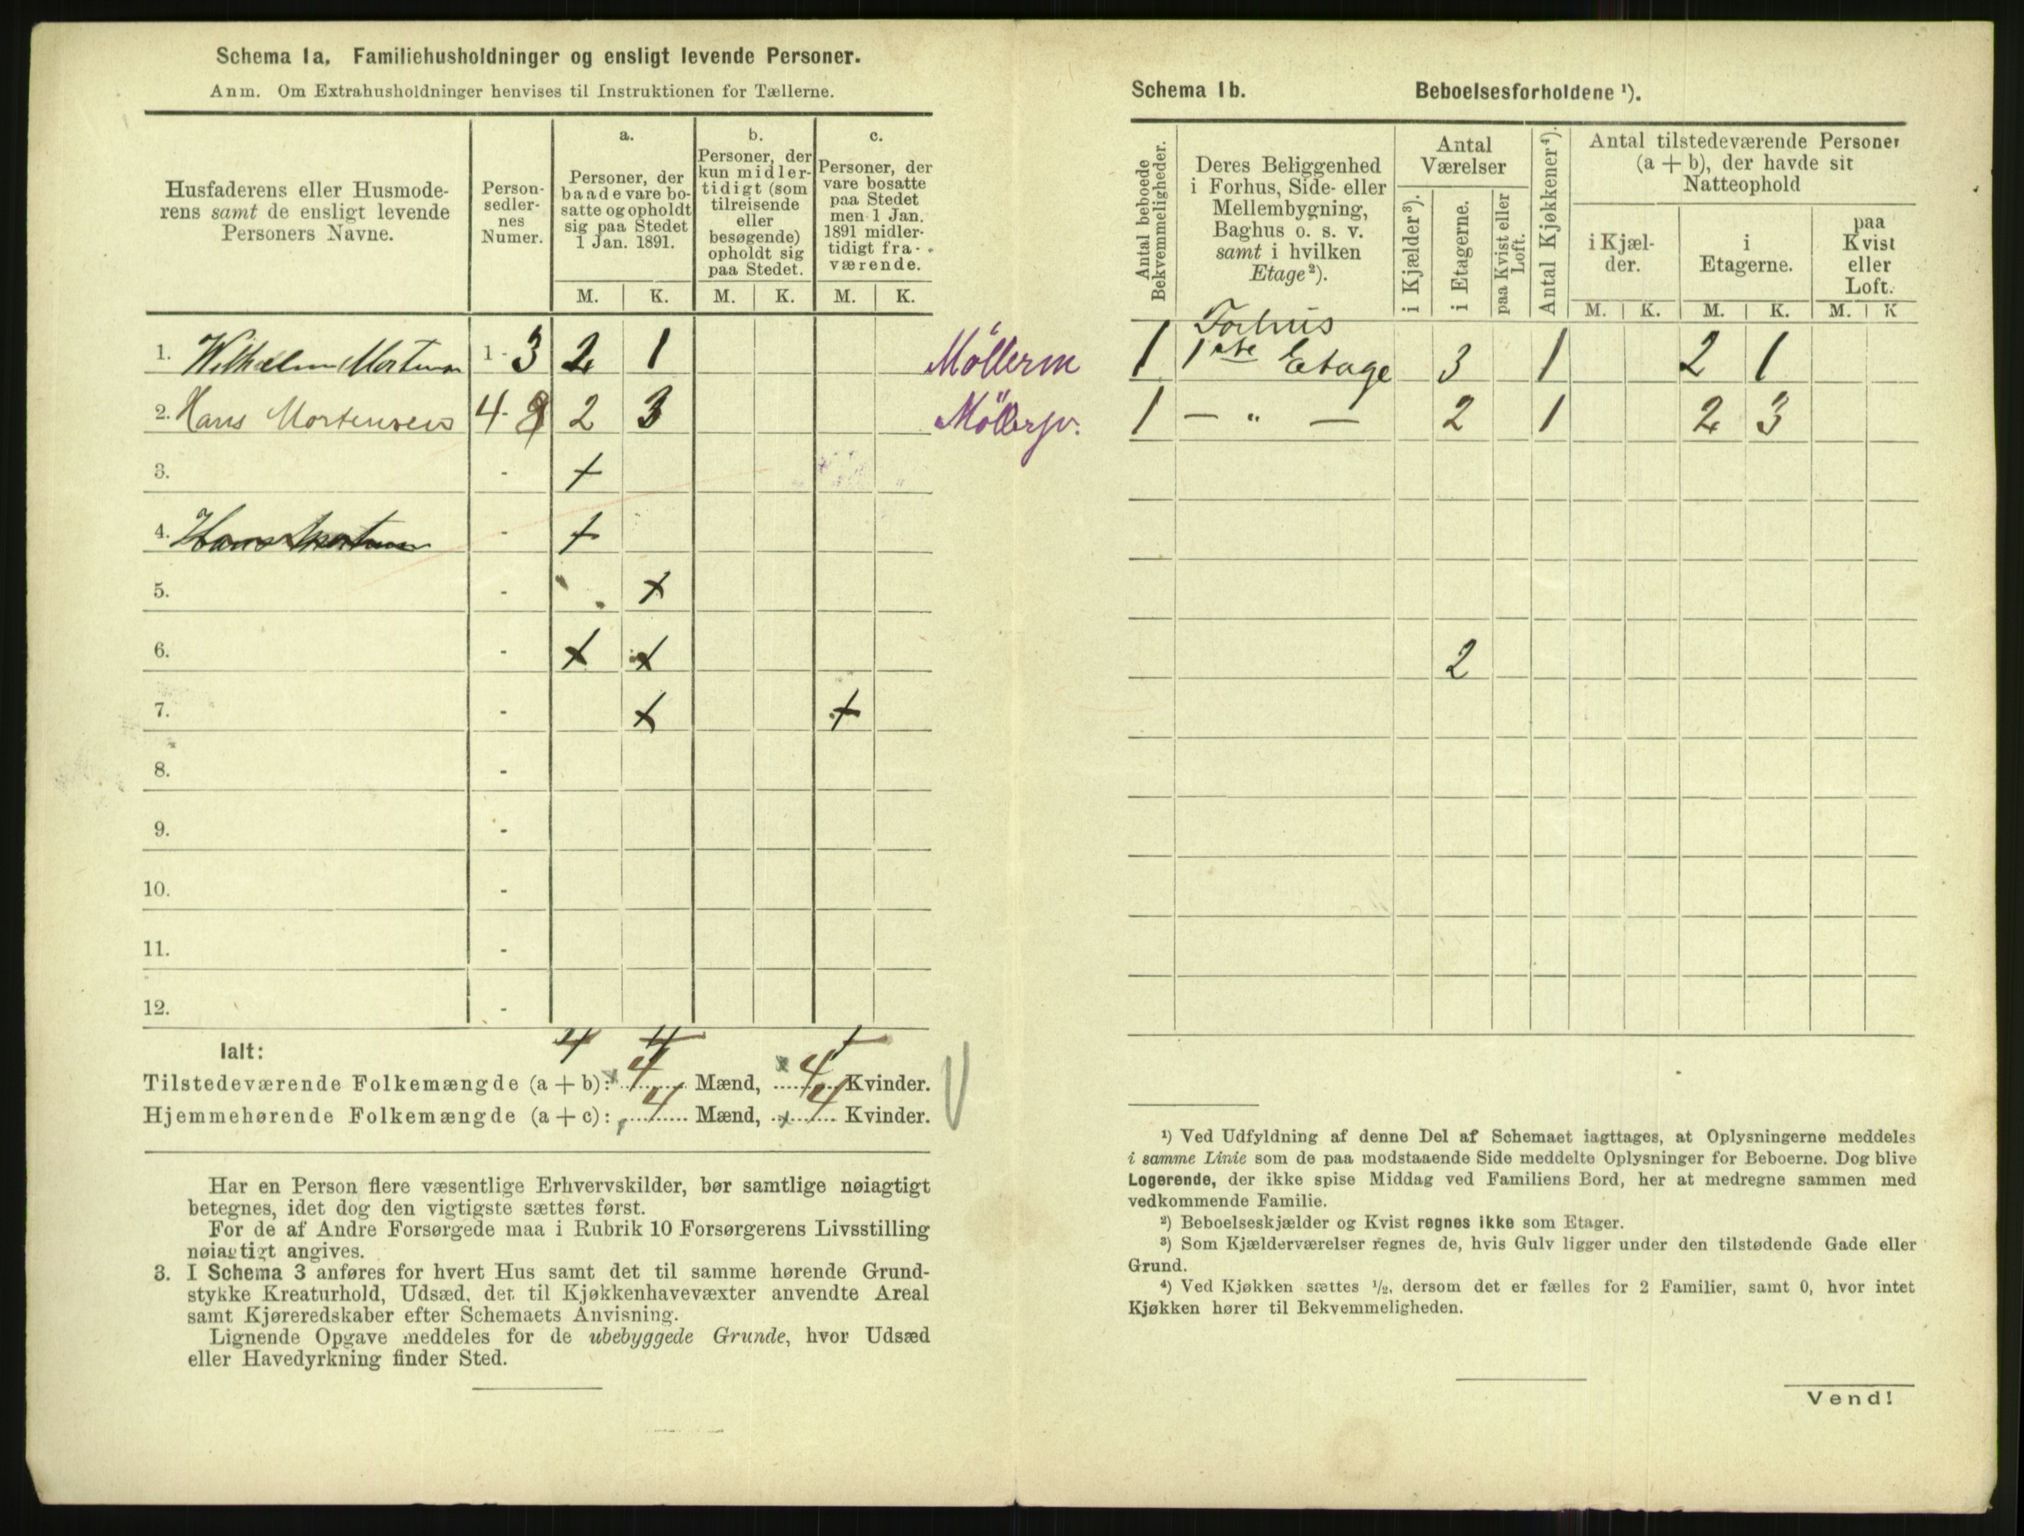 Schema 1a. Familiehusholdninger og ensligt levende Personer.
Anm. Om Extrahusholdninger henvises til Instruktionen for Tællerne.
Husfaderens eller Husmode-
rens samt de ensligt levende
Personers Navne.
Person-
sedler-
nes
Numer.
a.
Personer, der
baade vare bo-
satte og opholdt
sig paa Stedet
1 Jan. 1891.
b.
Personer, der
kun midler-
tidigt (som
tilreisende
eller
besøgende)
opholdt sig
paa Stedet.
c.
Personer, der
vare bosatte
paa Stedet
men 1 Jan.
1891 midler-
tidigt fra-
værende.
M. K. M. K. M. K.
1. Wilhelm Mortensen 1 - 3 2 1 Møllerm
2. Hans Mortensen 4 - 8 2 3 Møllersv.
3. - +
4. Hans Mortensen - +
5. - x
6. - x x
7. - x +
8. -
9. -
10. -
11. -
12. -
Ialt: 4 4 1
Tilstedeværende Folkemængde (a + b): x 4 Mænd, x 4 Kvinder.
Hjemmehørende Folkemængde (a + c): 4 Mænd, x 4 Kvinder.
Har en Person flere væsentlige Erhvervskilder, bør samtlige nøiagtigt
betegnes, idet dog den vigtigste sættes først.
For de af Andre Forsørgede maa i Rubrik 10 Forsørgerens Livsstilling
nøiagtigt angives.
3. I Schema 3 anføres for hvert Hus samt det til samme hørende Grund-
stykke Kreaturhold, Udsæd, det til Kjøkkenhavevæxter anvendte Areal
samt Kjøreredskaber efter Schemaets Anvisning.
Lignende Opgave meddeles for de ubebyggede Grunde, hvor Udsæd
eller Havedyrkning finder Sted.
Schema 1b. Beboelsesforholdene ¹).
Antal beboede
Bekvemmeligheder.
Deres Beliggenhed
i Forhus, Side- eller
Mellembygning,
Baghus o. s. v.
samt i hvilken
Etage²).
Antal
Værelser
i Kjælder³).
i Etagerne.
paa Kvist eller
Loft.
Antal Kjøkkener⁴).
Antal tilstedeværende Personer
(a + b), der havde sit
Natteophold
i Kjæl-
der.
i
Etagerne.
paa
Kvist
eller
Loft.
M. K. M. K. M. K
Forhus
1 1ste Etage 3 1 2 1
1 — „ — 2 1 2 3
2
¹) Ved Udfyldning af denne Del af Schemaet iagttages, at Oplysningerne meddeles
i samme Linie som de paa modstaaende Side meddelte Oplysninger for Beboerne. Dog blive
Logerende, der ikke spise Middag ved Familiens Bord, her at medregne sammen med
vedkommende Familie.
²) Beboelseskjælder og Kvist regnes ikke som Etager.
³) Som Kjælderværelser regnes de, hvis Gulv ligger under den tilstødende Gade eller
Grund.
⁴) Ved Kjøkken sættes ½, dersom det er fælles for 2 Familier, samt 0, hvor intet
Kjøkken hører til Bekvemmeligheden.
Vend!